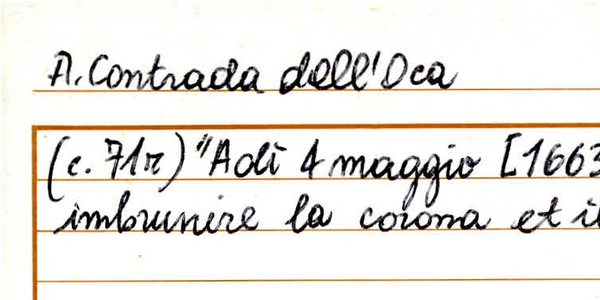 A. Contrada dell'Oca
(c. 71r) "Adì 4 maggio [1663
imbrunire la corona et i